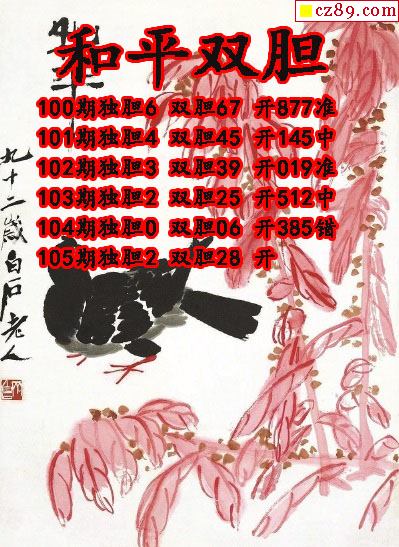 cz89.com
和平双胆
100期独胆6 双胆67 开877准
101期独胆4 双胆45 开145中
102期独胆3 双胆39 开019准
103期独胆2 双胆25 开512中
104期独胆0 双胆06 开385错
105期独胆2 双胆28 开
九十二岁白石老人